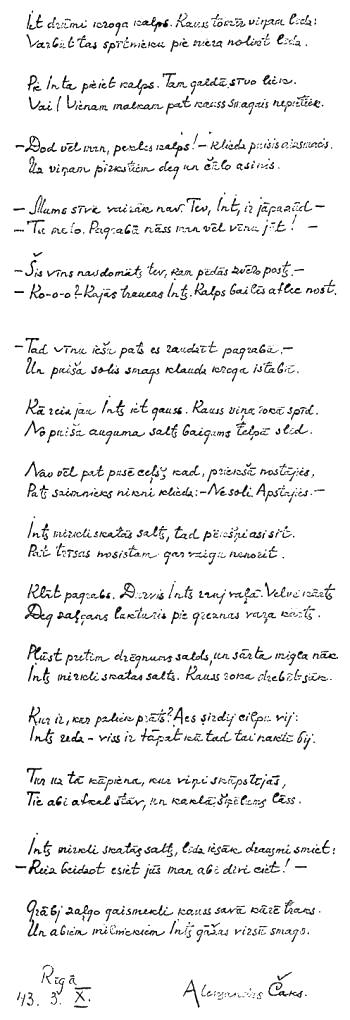 Iet drūmi kroga kalps. Kauss tomēr viņam līdz:
Varbūt tas sprēmieku pie miera nolikt līdz.
Pie Inta pieiet kalps. Tam galdā sīvo liek.
Vai! Vienam malkam pat kauss smagais nepietiek.
— Dod vēl man, pekles kalps! — kliedz puisis aizsmacis.
Uz viņam pirkstiem deg un čūlo asinis.
— Mums sīvā vairāk nav. Tev, Int, ir jāpazūd —
— Tu melo. Pagrabā nāss man vēl vīnu jūt! —
— Šis vīns nav domāts tev, kam pēdās zvēro posts. —
— Ko-o-o? — Kājās traucas Ints. Kalps bailēs atlec nost.
— Tad vīnu iešu pats es raudzīt pagrabā. —
Un puiša solis smags klaudz kroga istabā.
Kā reiz jau Ints iet gauss. Kauss viņa rokā spīd.
No puiša auguma salts baigums telpā slīd.
Nav vēl pat pusē ceļš kad, priekšā nostājies,
Pats saimnieks nikni kliedz: — Ne soli. Apstājies. —
Ints mirkli skatās salts, tad pēkšņi asi sit.
Pat tērsas nosistam gar vaigu nenorit.
Klāt pagrabs. Durvis Ints rauj vaļā. Velvē kārts
Deg zaļgans lukturis pie greznas vara kārts.
Plūst pretim drēgnums salds, un sārta migla nāk.
Ints mirkli skatās salts. Kauss rokā drebēt sāk.
Kur ir, kur paliek prāts? Acs sirdij cilpu vij:
Ints redz — viss ir tāpat kā tad tai naktī bij.
Tur uz tā kāpiena, kur viņi skūpstījās,
Tie abi atkal stāv, un kaklā: lāss.
Ints mirkli skatās salts, līdz iesāk draugmi smiet:
— Reiz beidzot esiet jūs man abi divi ciet! —
Grābj zaļgo gaismekli kauss savā kārē traks.
Un abiem mīlniekiem Ints gāžas virsū smags.
Rīgā
43. 3. X.
Aleksandrs Čaks.